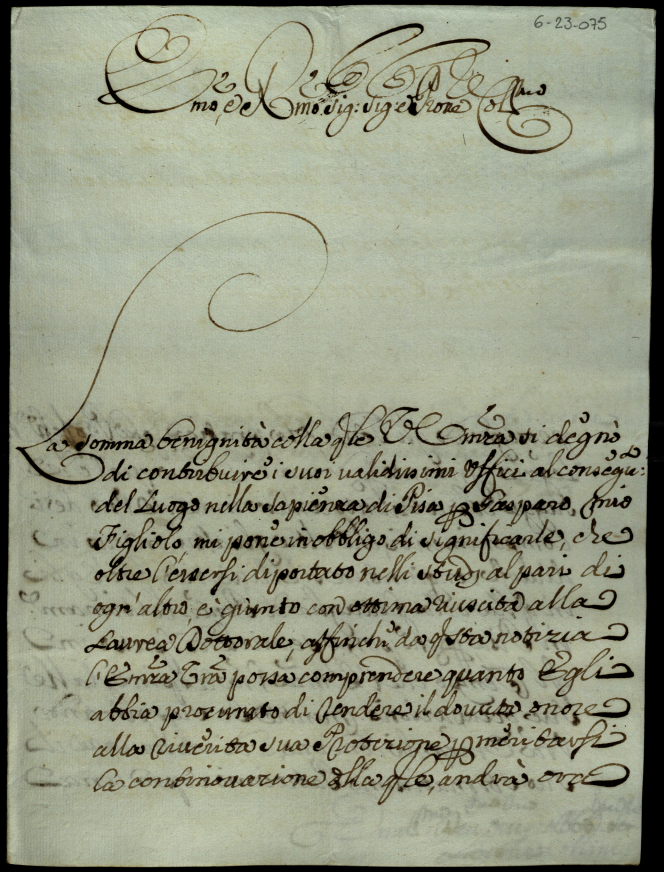 6-23-075
Em̃o, e Rmo Sig: Sig: e Prone Col̃mo
La somma benignità colla q̃le V. Em̃za si degnò
di contribuire i suoi validissimi Uffici al consegu:to
del Luogo nella Sapienza di Pisa p Gasparo, mio
Figliolo mi pone in obbligo di significarle, che
oltre l'essersi diportato nelli studj al pari di
ogn'altro, è giunto con ottima riuscita alla
Laurea Dottorale, affinchè da q̃sta notizia
l'Em̃za Vr̃a possa comprendere quanto Egli
abbia procurato di rendere il dovuto onore
alla riverita sua Protezione p meritarsi
la continovazione della q̃le, andrà ora